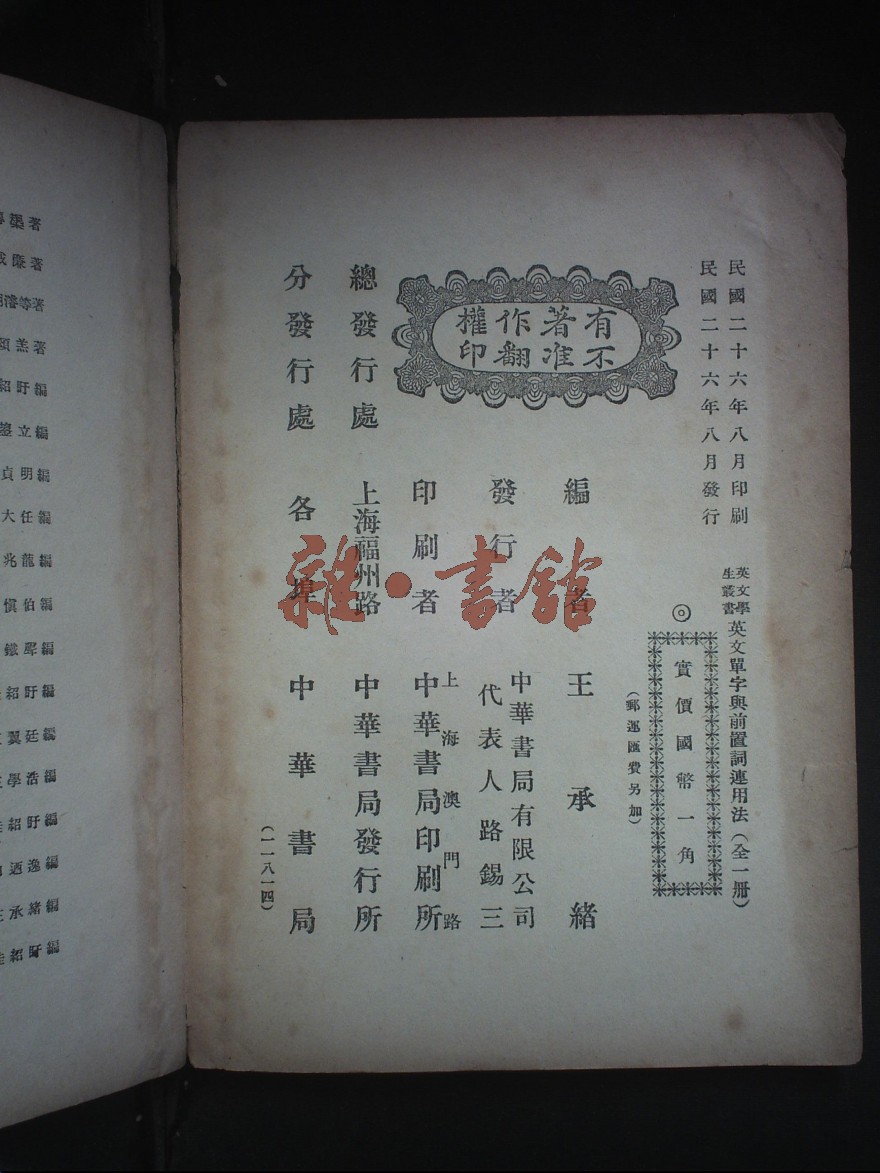 民國二十六年八月印刷
民國二十六年八月發行
英文學生叢書 英文單字與前置詞連用法（全一冊）
◎
實價國幣一角
（郵運匯費另加）
有著作權
不准翻印
編者 王承緒
發行者 中華書局有限公司
代表人路錫三
印刷者 上海澳門路
中華書局印刷所
總發行處 上海福州路 中華書局發行所
分發行處 各埠 中華書局
（一一八一四）
雜·書館
著
廉著
濤等著
羔著
紹盱編
立編
貞明編
大任編
兆龍編
慎伯編
鐵
紹盱編
翼廷編
學浩編
紹盱編
迺逸編
承緒編
紹盱編